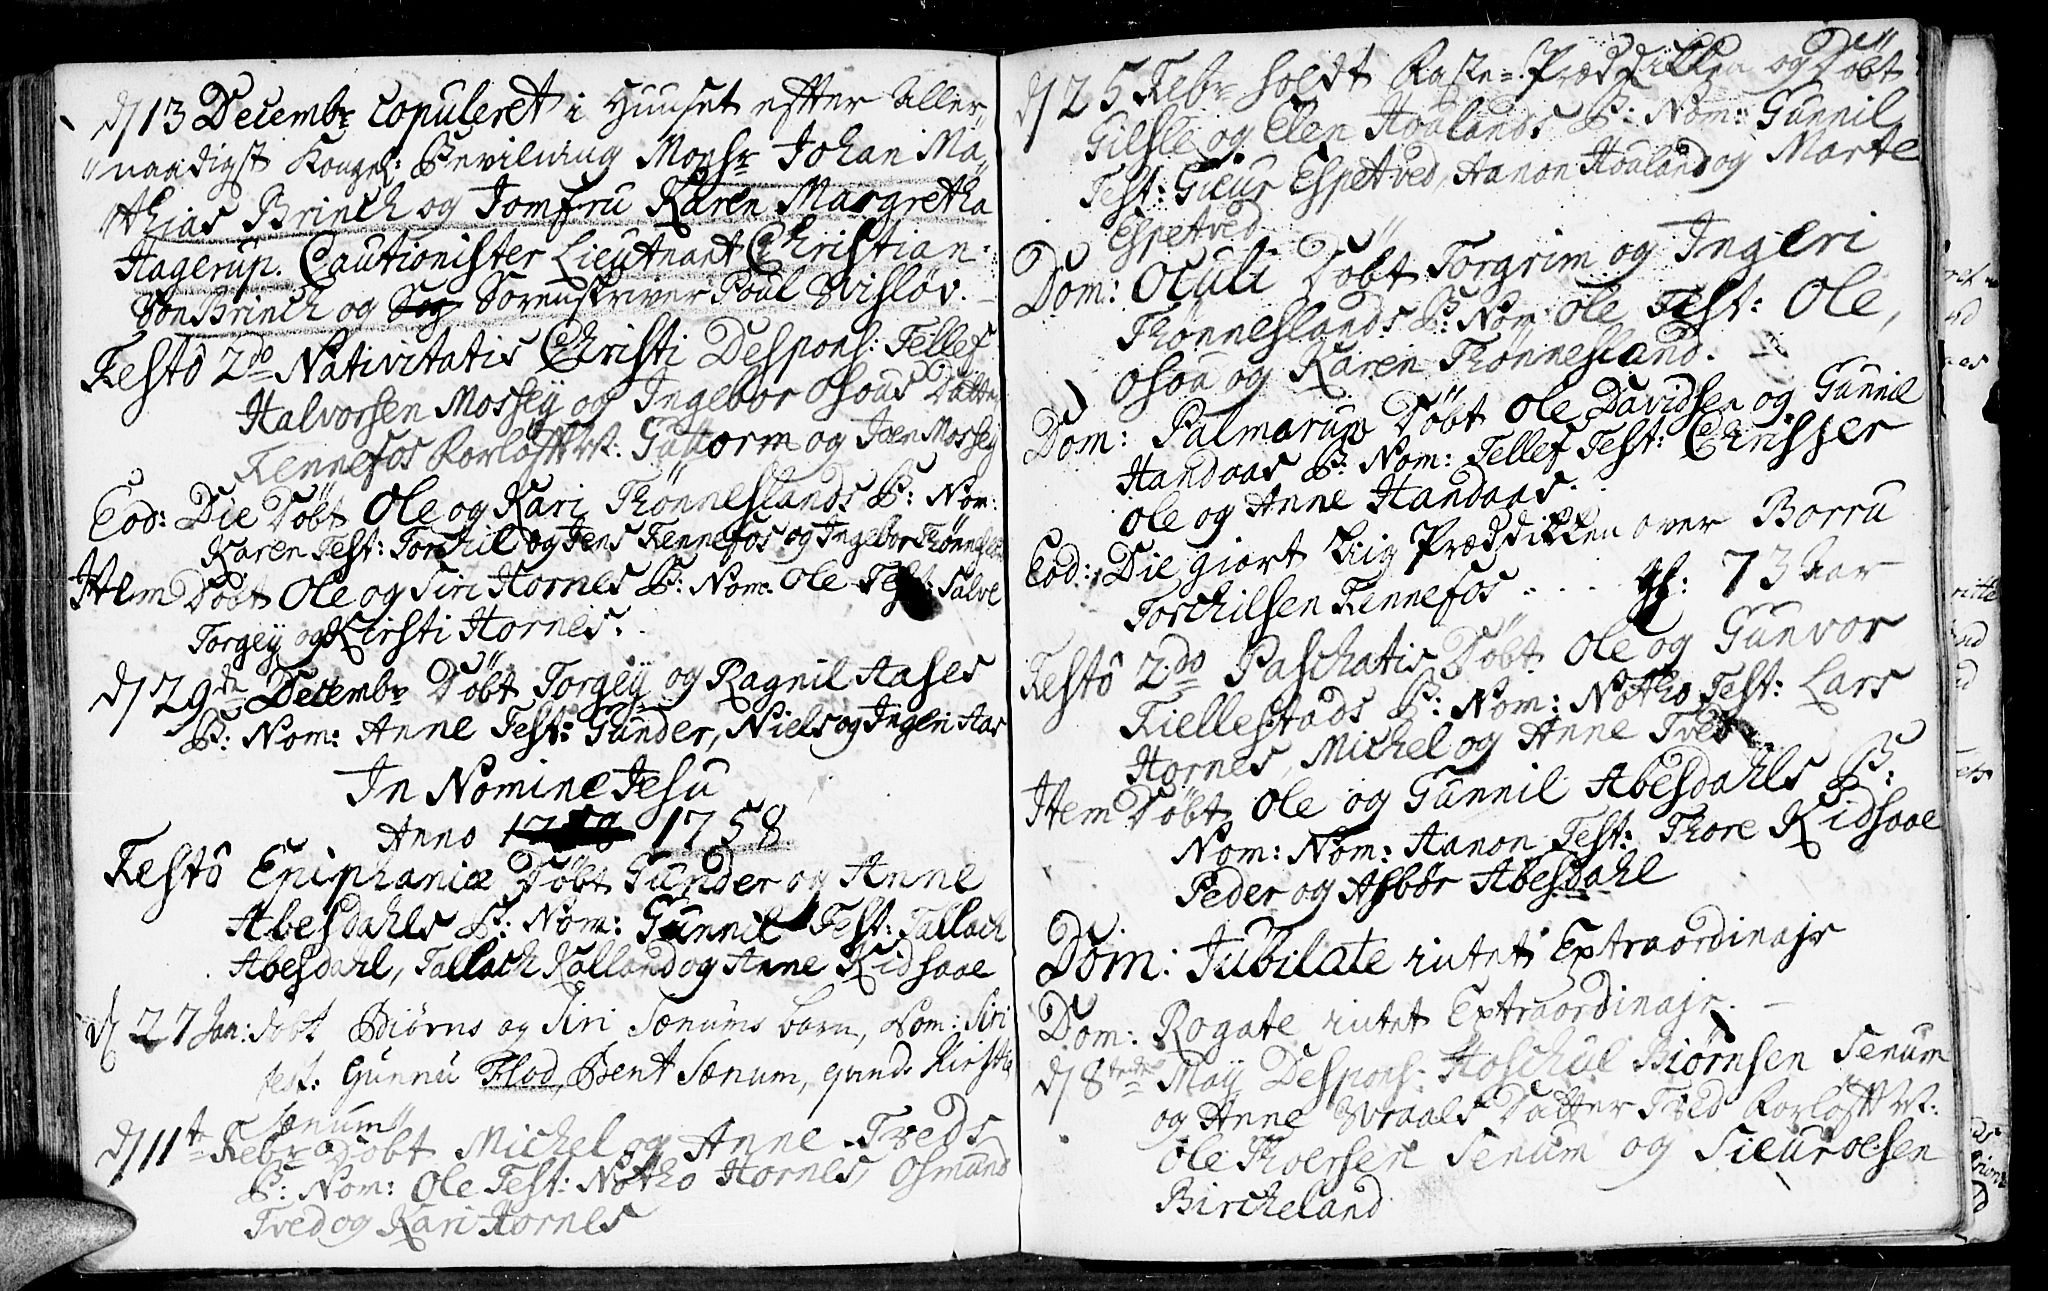 d 13 Decembr copuleret i Huuset efter Aller,
naadigst Kongel: Bevilning Monsr Johan Ma=
thias Brinch og Jomfru Karen Margretha
Hagerup. Cautionister Lieutnant Christian
von Brinch og Sorenskriver Poul Wisløv.
Festo 2do Nativitatis Christi Despons: Tellef
Halvorsen Mossey og Ingebor Osous Datter
Fennefos Forløftt: Guttorm og Joen Mossey
Eod: Die Døbt Ole og Kari Thønneslands B: Nom:
Karen Test: Torchil og Jens Fennefos og Ingebor Thønnesland
Item Døbt Ole og Siri Hornes B: Nom: Ole Test: Salve
Torgey og Kirsti Hornes.
d 29de Decembr Døbt Torgey og Ragnil Aases
B: Nom: Anne Test: Gunder, Niels og Ingeri Aas
In Nomine Jesu
Anno 1758
Festo Epiphaniæ Døbt Gunder og Anne
Abesdahls B: Nom: Gunnil Test: Tallach
Abesdahl, Tallach Kolland og Anne Kidsaae
d 27 Jan: døbt Biørns og Siri Sænums barn, Nom: Siri
test: Gunnu Flod, Bent Sænum, qvind: Kirsti
Sænum
d 11t Febr Døbt Michel og Anne Tveds
B: Nom: Ole Test: Notho Hornes, Osmund
Tved og Kari Hornes
d 25 Febr holdt Faste=Prædikken og Døbt
Gilsle og Elen Houlands B: Nom: Gunnil
Test: Sieur Espetved, Aanon Houland og Marte
Espetved
Dom: Oculi Døbt Torgrim og Ingeri
Thønneslands B: Nom: Ole Test: Ole,
Osou og Karen Thønnesland.
Dom: Palmarum Døbt Ole Davidsen og Gunnil
Handaas B: Nom: Tellef Test: Christer
Ole og Anne Handaas.
Eod: Die giort Liig Prædikken over Borru
Torchilsen Fennefos . . . . gl: 73 Aar
Festo 2do Paschatis Døbt Ole og Gunvor
Kiellestads B: Nom: Notho Test: Lars
Hornes, Michel og Anne Tved
Item Døbt Ole og Gunnil Abesdahls B:
Nom: Nom: Aanon Test: Thore Kidsaae
Peder og Asbør Abesdahl
Dom: Jubilate intet Extraordinajr
Dom: Rogate intet Extraordinajr.
d 8tende Maij Despons: Hoschul Biørnsen Senum
og Anne Wraals Datter Tved Forløftt:
Ole Thorsen Senum og Sieur Olsen
Bircheland